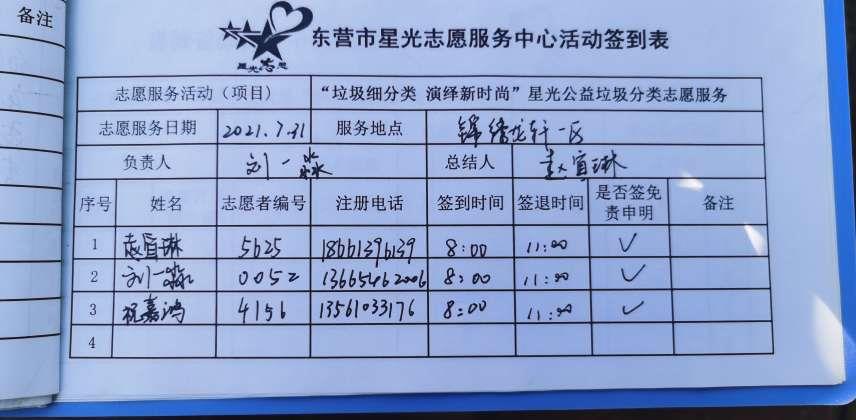 备注
星光志愿
东营市星光志愿服务中心活动签到表
志愿服务活动（项目） “垃圾细分类 演绎新时尚”星光公益垃圾分类志愿服务
志愿服务日期 2021.7.31 服务地点 锦绣龙轩一区
负责人 刘一淼 总结人 赵宜琳
序号 姓名 志愿者编号 注册电话 签到时间 签退时间 是否签免责申明 备注
1 赵宜琳 5625 18661396139 8:00 11:00 ✓
2 刘一淼 0052 13665462006 8:00 11:00 ✓
3 祝嘉鸿 4156 13561033176 8:00 11:00 ✓
4